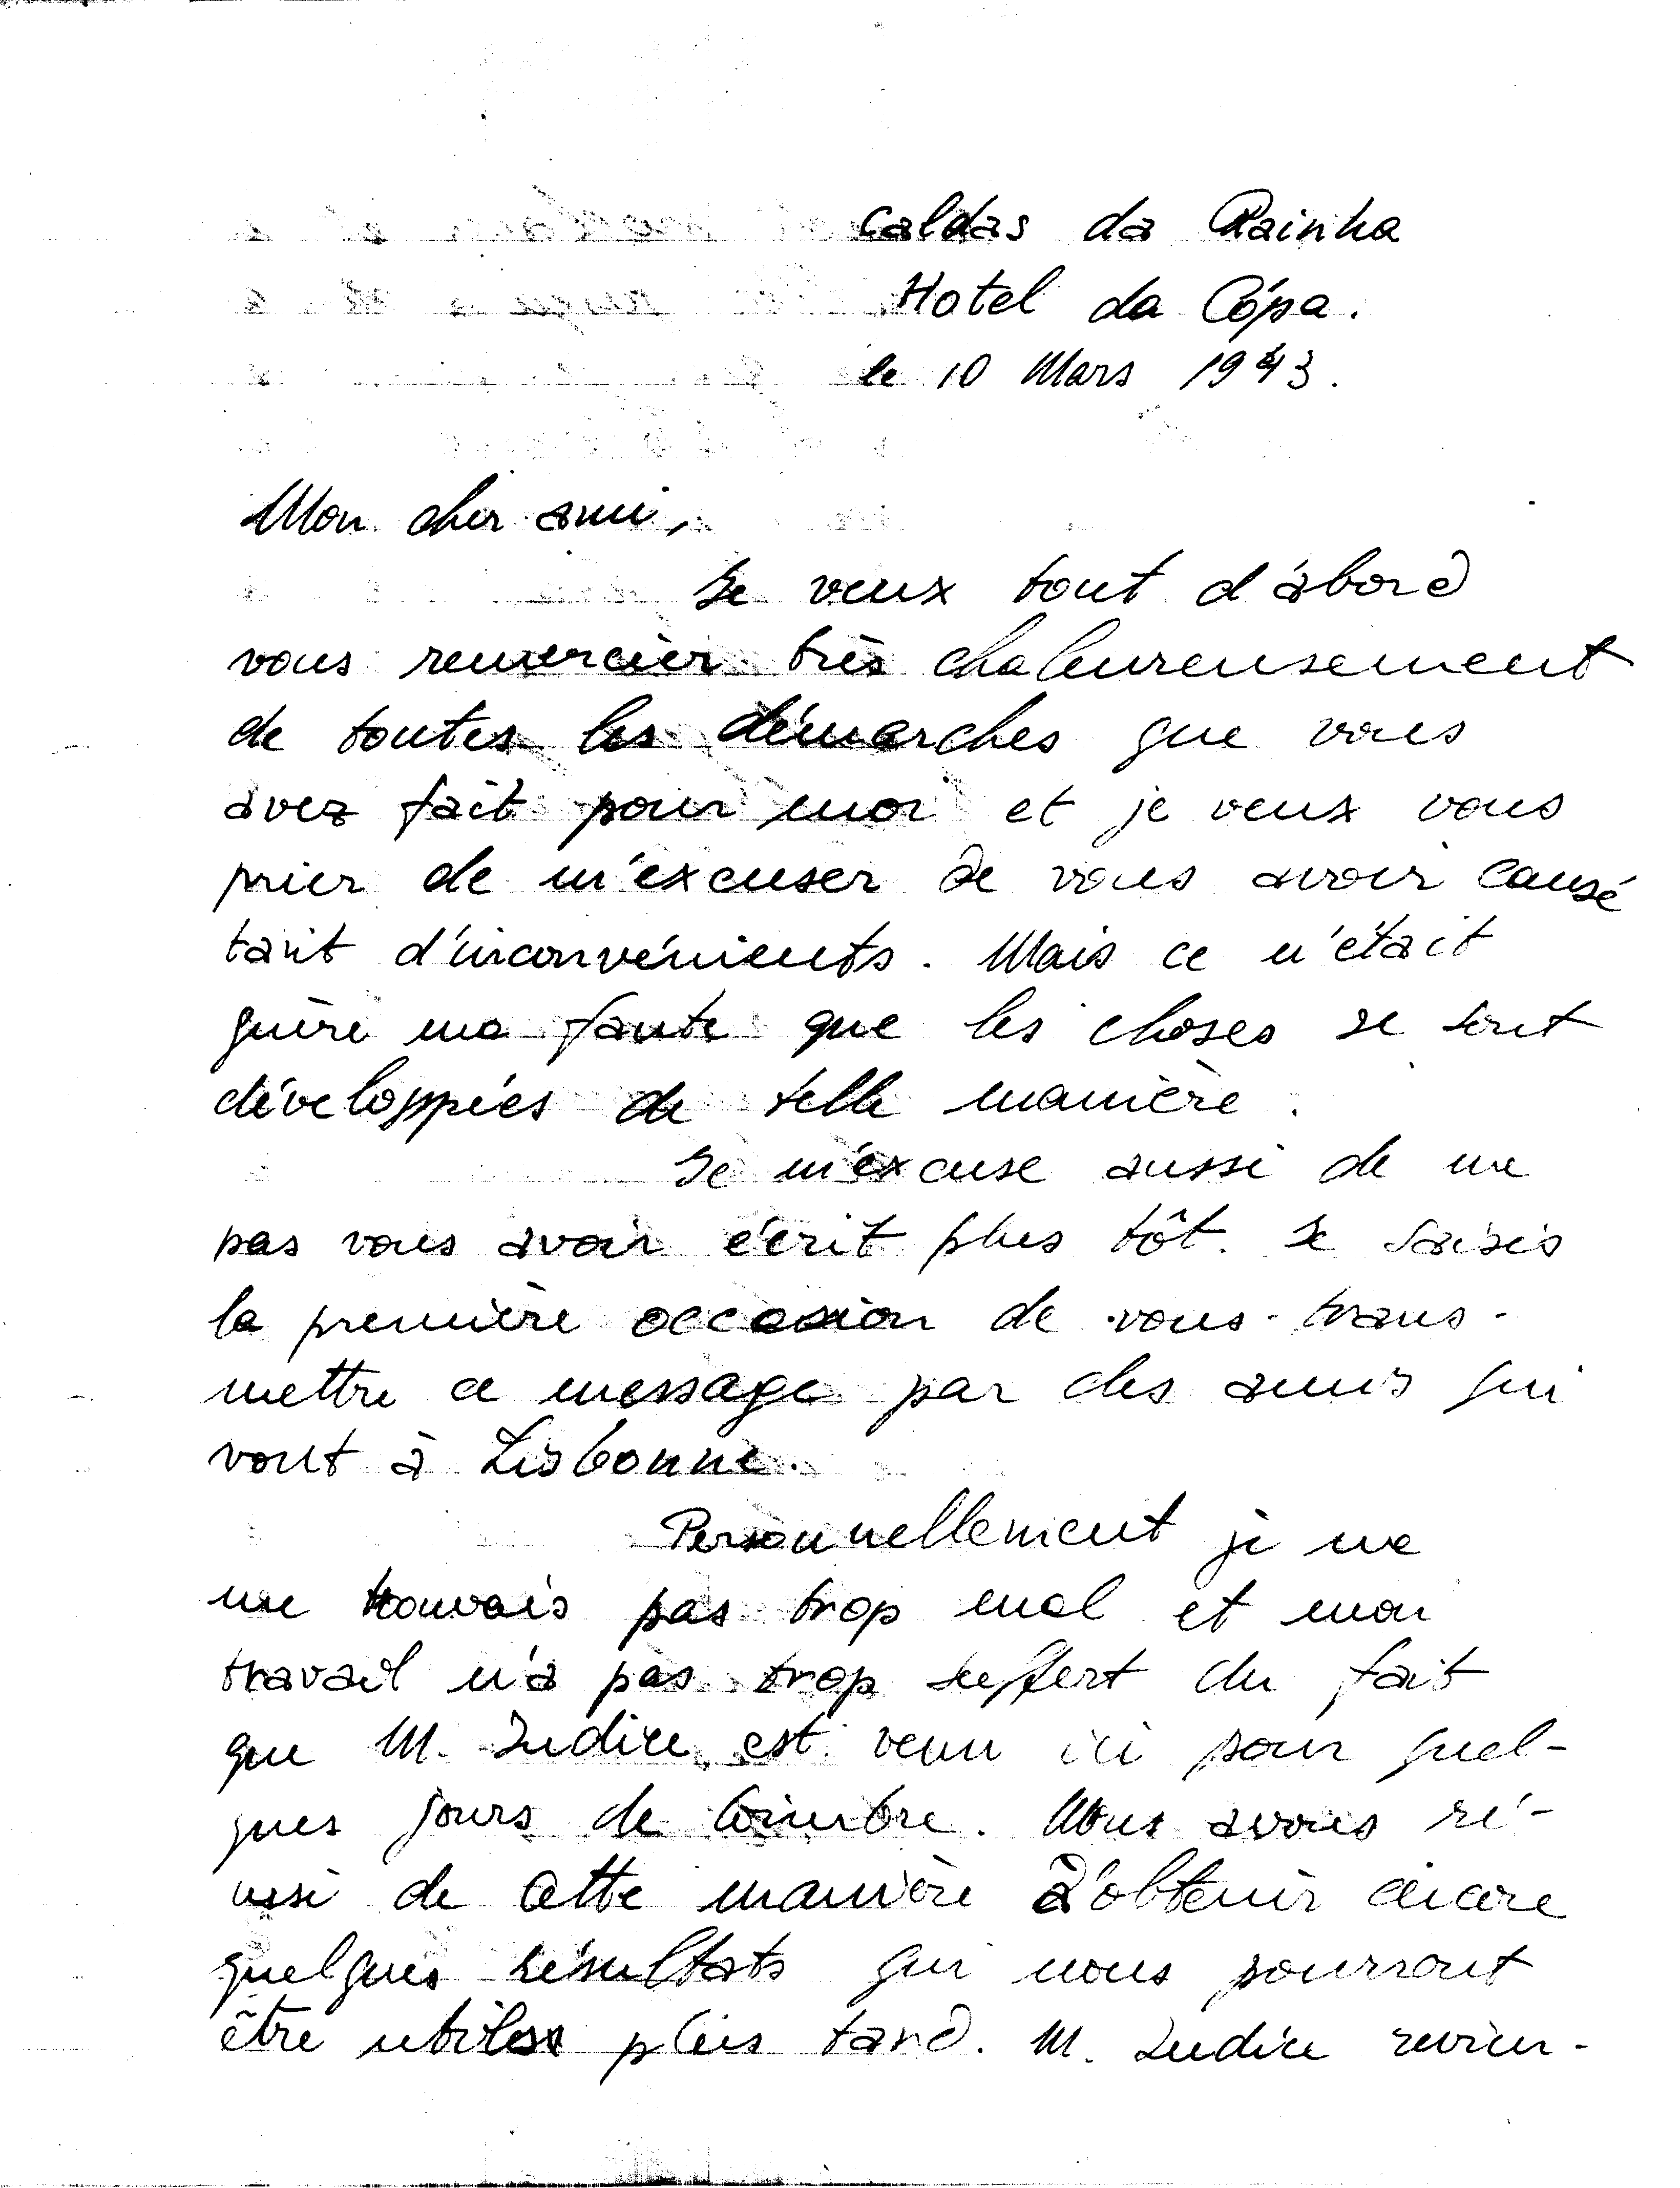 Caldas da Rainha
Hotel da Cópa.
le 10 Mars 1943.
Mon cher ami,
Je veux tout d'abord
vous remercier très chaleureusement
de toutes les démarches que vous
avez fait pour moi et je veux vous
prier de m'excuser de vous avoir causé
tant d'inconvénients. Mais ce n'était
guère ma faute que les choses se sont
développées de telle manière.
Je m'excuse aussi de ne
pas vous avoir écrit plus tôt. Je saisis
la première occasion de vous trans-
mettre ce message par des amis qui
vont à Lisbonne.
Personnellement je ne
me trouvais pas trop mal et mon
travail n'a pas trop suffert du fait
que M. Judice est venu ici pour quel-
ques jours de Coimbre. Nous avons ré-
ussi de cette manière d'obtenir encore
quelques résultats qui nous pourront
être utiles plus tard. M. Judice revien-